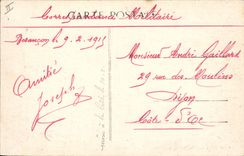 Correspondance Militaire
CARTE POSTALE
Besançon le 9.2.1915
Monsieur André Gaillard
29 rue des Moulins
Dijon
Côte-d'Or
Amitié
Joseph